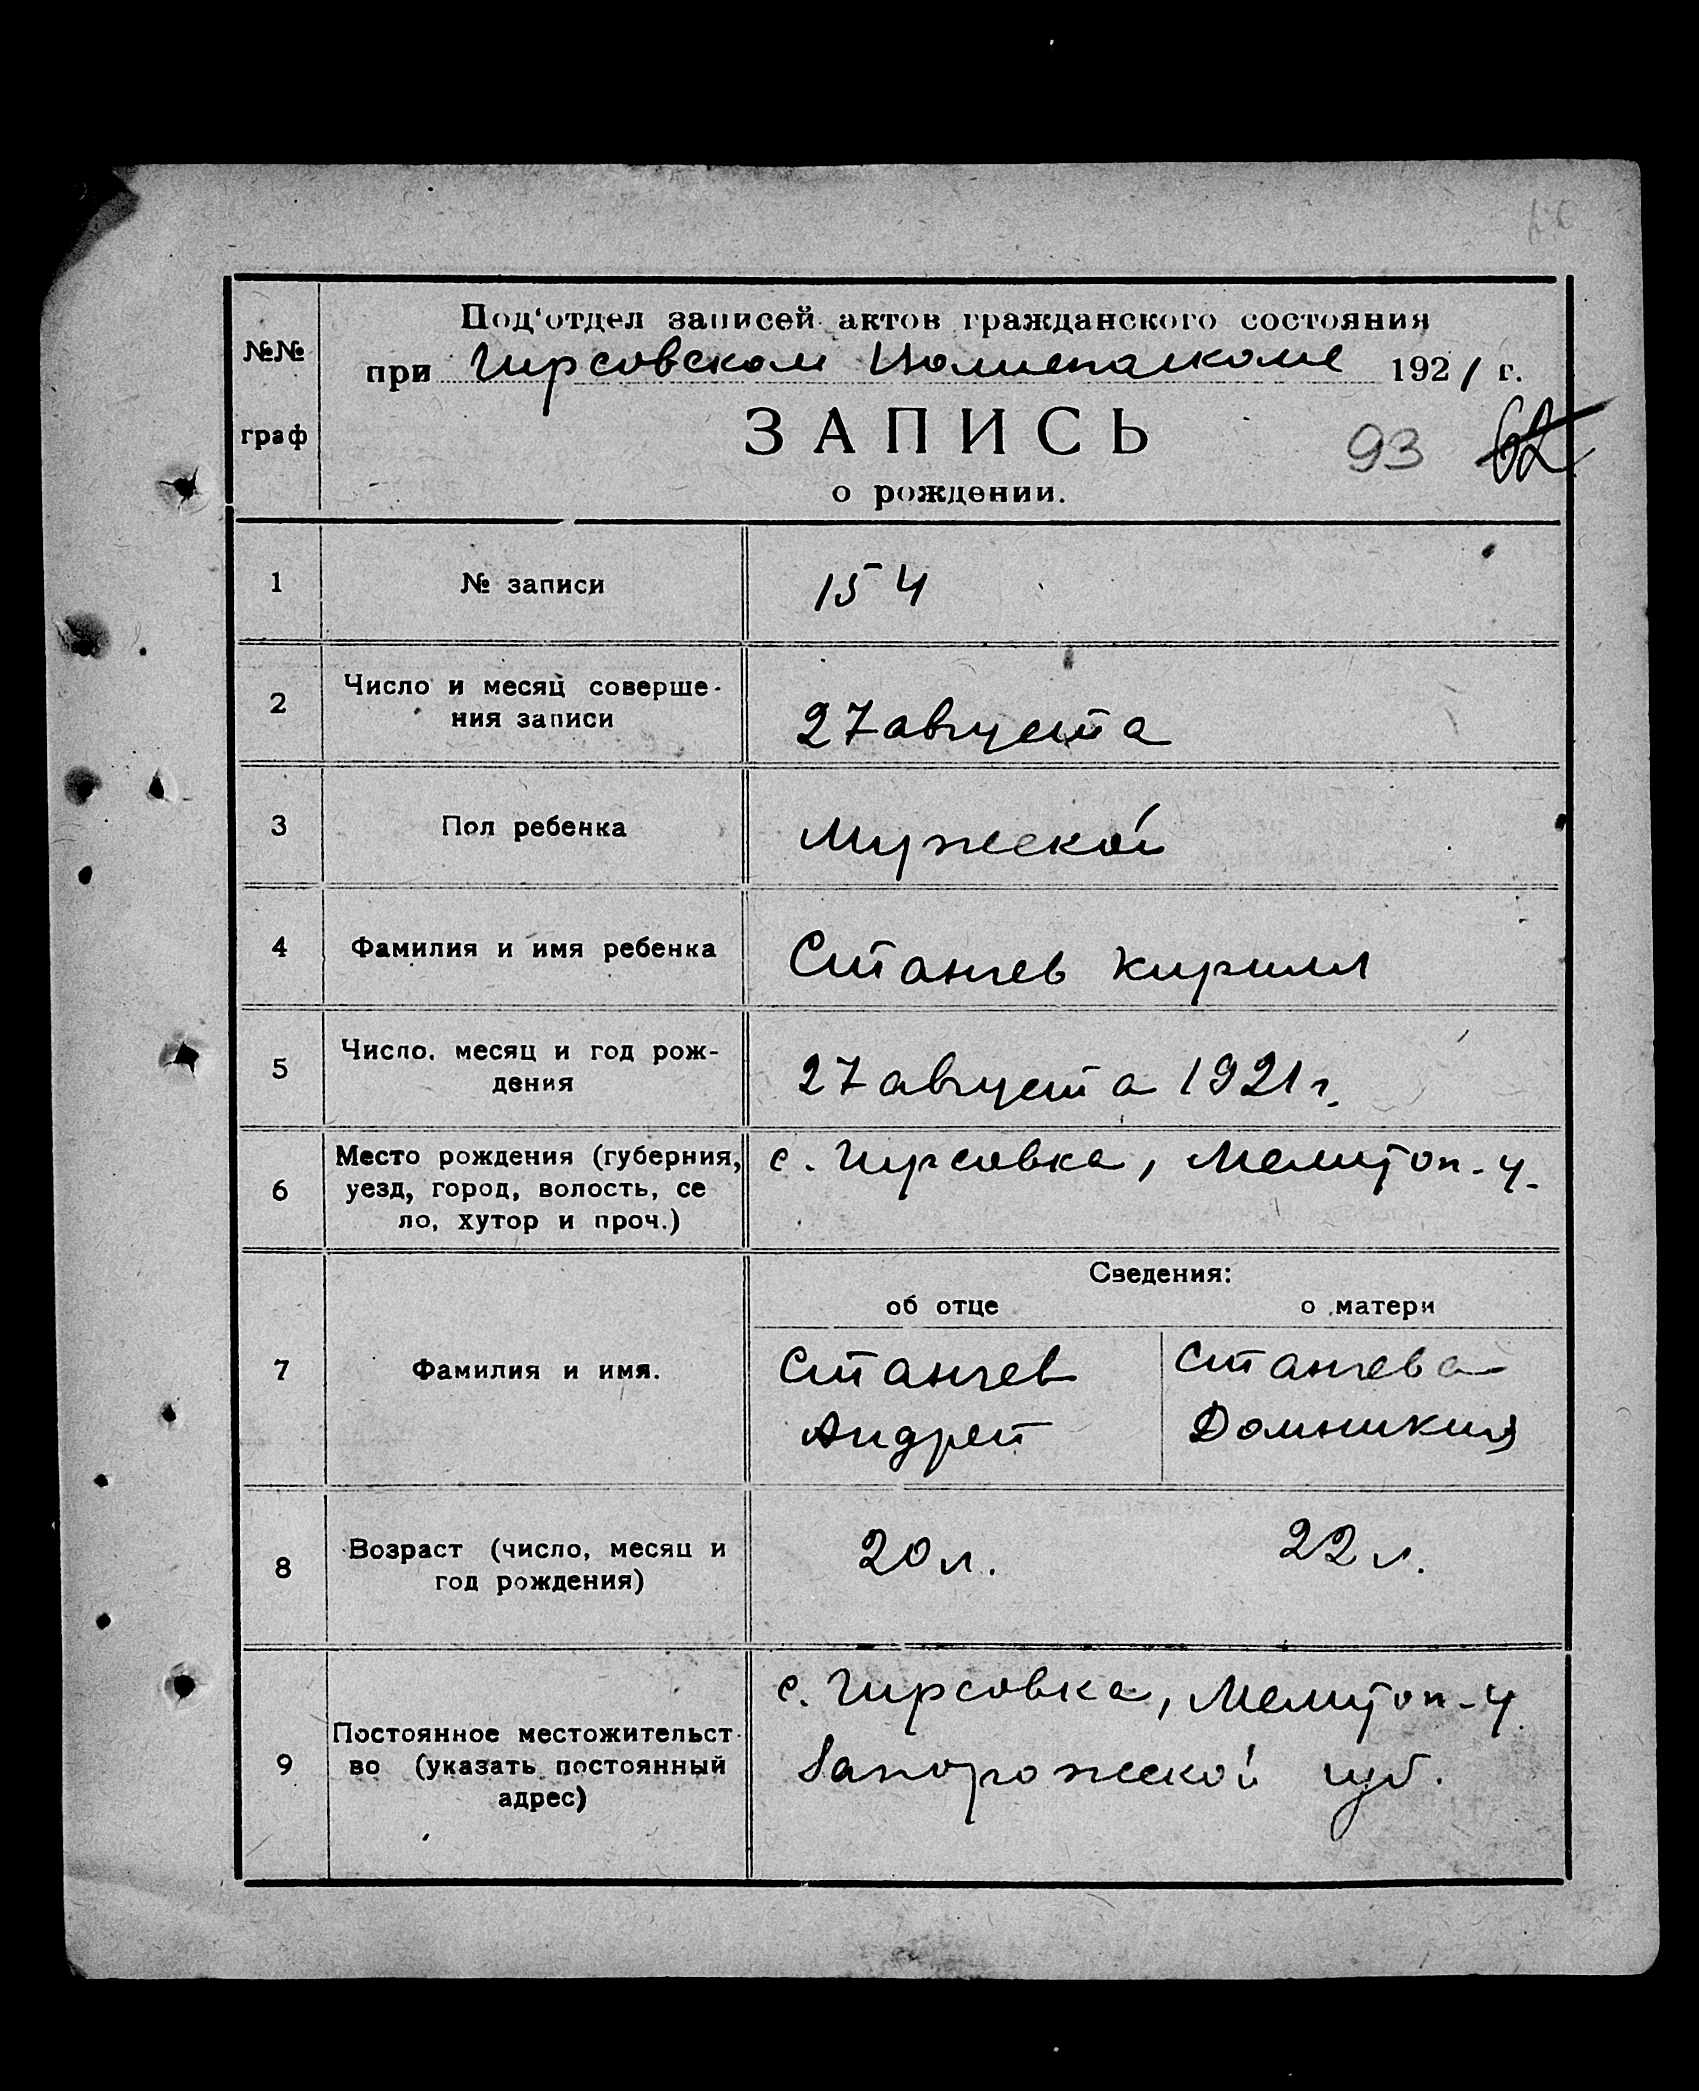 №№
граф
Под‘отдел записей актов гражданского состояния
при Гирсовском Волисполкоме 1921 г.
ЗАПИСЬ
93 62
о рождении.
1 № записи 154
2 Число и месяц соверше-
ния записи 27 августа
3 Пол ребенка Мужской
4 Фамилия и имя ребенка Станчев Кирилл
5 Число, месяц и год рож-
дения 27 августа 1921 г.
6 Место рождения (губерния, с. Гирсовка, Мелитоп-у.
уезд, город, волость, се
ло, хутор и проч.)
Сведения:
об отце о матери
7 Фамилия и имя. Станчев Станчева
Андрей Домникия
8 Возраст (число, месяц и 20 л. 22 л.
год рождения)
с. Гирсовка, Мелитоп-у.
9 Постоянное местожительст-
во (указать постоянный Запорожской губ.
адрес)